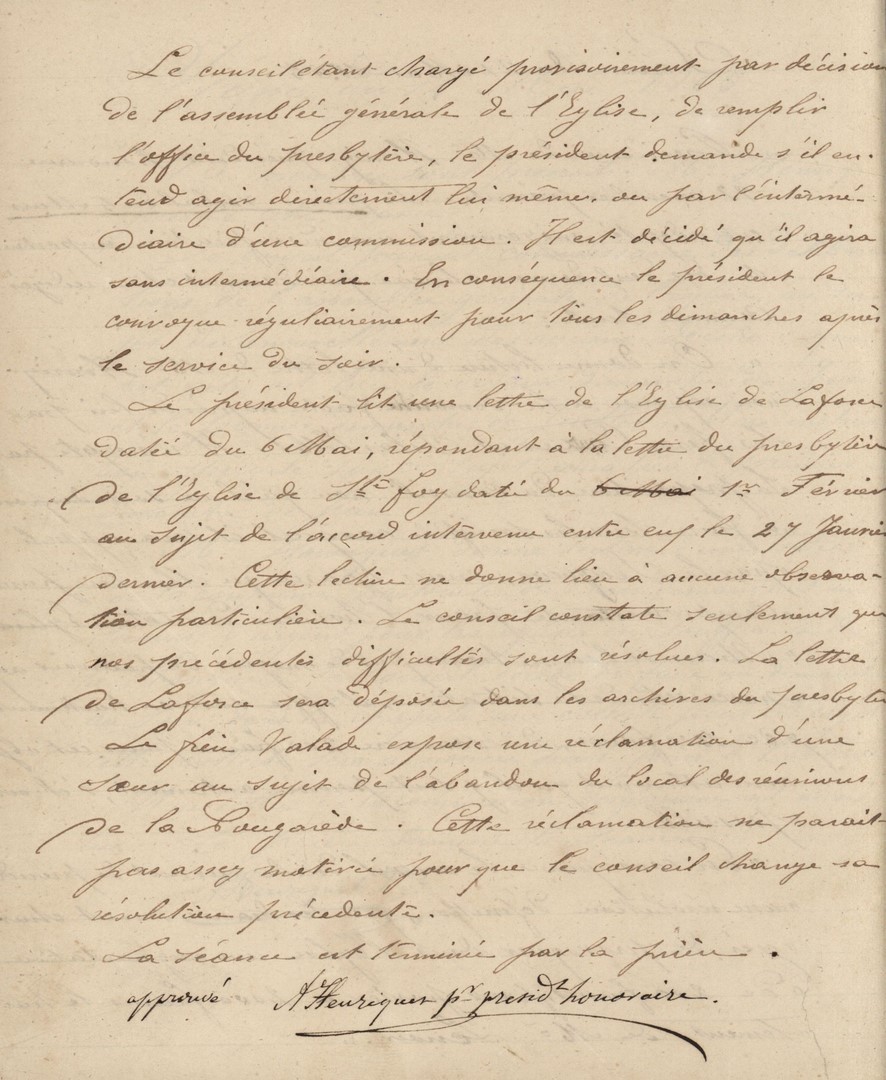 Le conseil étant chargé provisoirement par décision
de l'assemblée générale de l'Eglise, de remplir
l'office du presbytère, le président demande s'il en-
tend agir directement lui même, ou par l'intermé-
diaire d'une commission. Il est décidé qu'il agira
sans intermédiaire. En conséquence le président le
convoque réguliairement pour tous les dimanches après
le service du soir.
Le président lit une lettre de l'Eglise de Laforce
datée du 6 Mai, répondant à la lettre du presbytère
de l'Eglise de Ste foy datée du 6 Mai 1er Février
au sujet de l'accord intervenu entre eux le 27 Janvier
dernier. Cette lecture ne donne lieu à aucune observa-
tion particulière. Le conseil constate seulement que
nos précédentes difficultés sont résolues. La lettre
de Laforce sera déposée dans les archives du presbytè
Le frère Valade expose une réclamation d'une
sœur au sujet de l'abandon du local des réunions
de la Nougarède. Cette réclamation ne parait
pas assez motivée pour que le conseil change sa
résolution précédente.
La séance est terminée par la prière.
approuvé AHenriquet pr presidt honoraire.